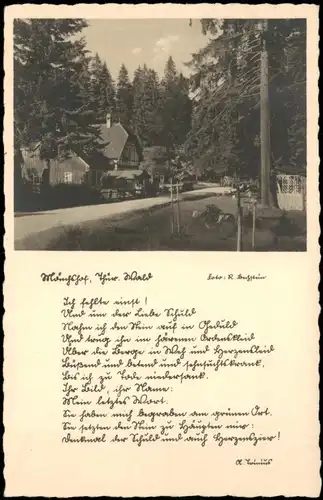 Mönchshof, Thür. Wald
Foto: R. Bechstein
Ich fehlte einst!
Und um der Liebe Schuld
Nahm ich den Stein auf in Geduld
Und trug ihn im härenen Ordenskleid
Über die Berge in Weh und Herzensleid
Büßend und betend und sehnsuchtskrank,
Bis ich zu Tode niedersank.
Ihr Bild, ihr Name:
Mein letztes Wort.
Sie haben mich begraben am grünen Ort.
Sie setzten den Stein zu Häupten mir:
Denkmal der Schuld und auch Herzenszier!
A. Trinius